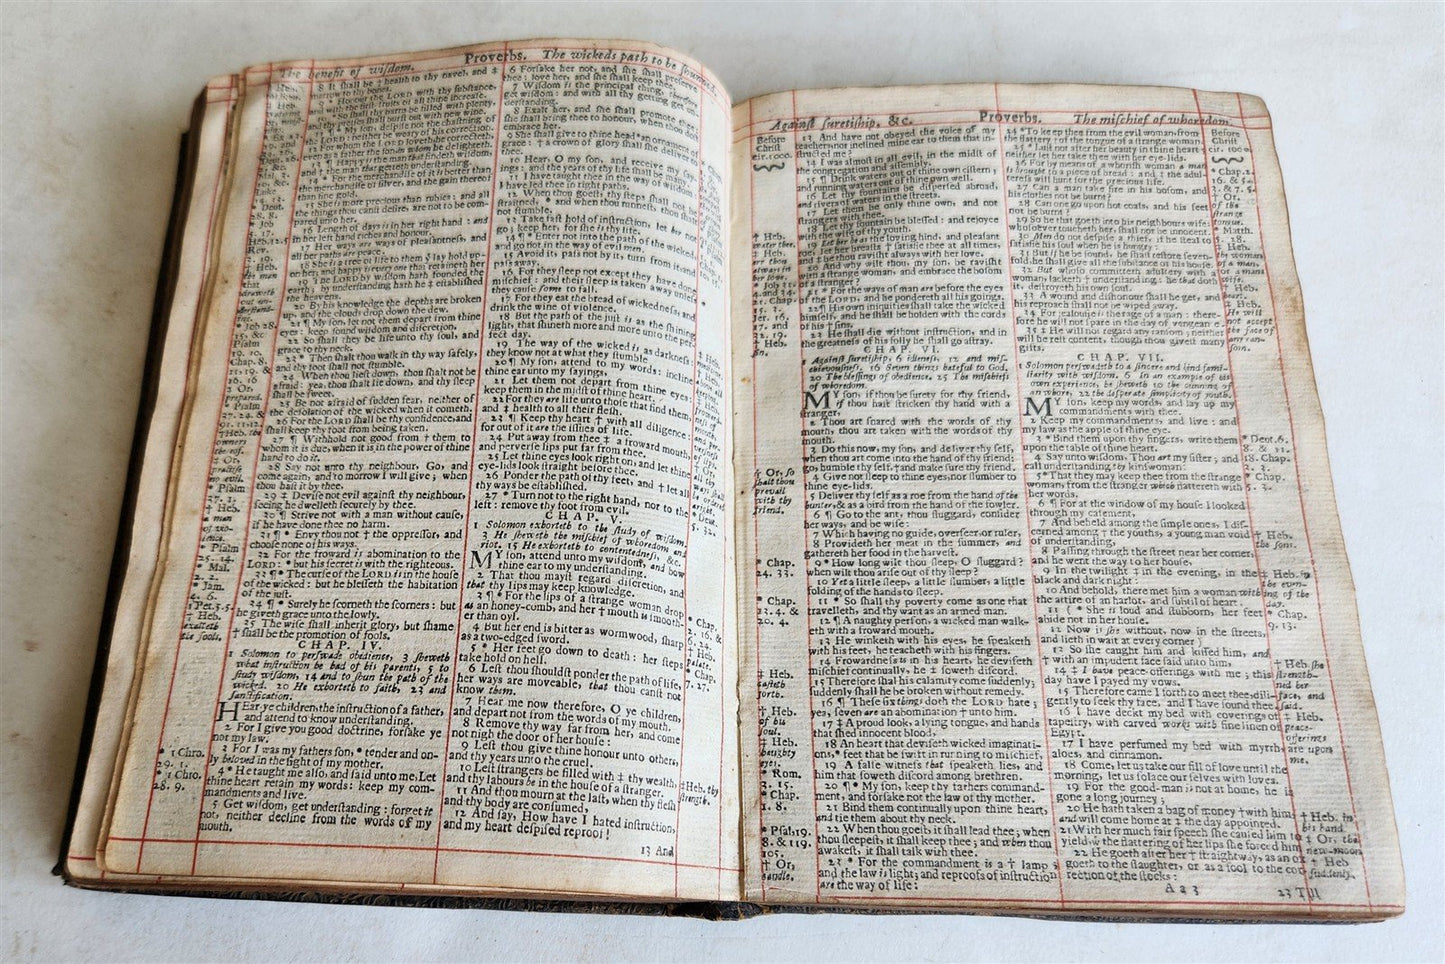 The benefit of wiſdom.
Proverbs.
The wickeds path to be ſhunned.
8 It ſhall be ‡ health to thy navel, and ‡
marrow to thy bones.
9 * Honour the LORD with thy ſubſtance,
and with the firſt-fruits of all thine increaſe.
10 So ſhall thy barns be filled with plenty,
and thy preſſes ſhall burſt out with new wine.
11 ¶ * My ſon, deſpiſe not the chaſtning of
the LORD: neither be weary of his correction.
12 For whom the LORD loveth he correcteth,
even as a father the ſon in whom he delighteth.
13 ¶ Happy is the man that findeth wiſdom,
and the man that getteth underſtanding.
14 * For the merchandiſe of it is better than
the merchandiſe of ſilver, and the gain thereof
than fine gold.
15 She is more precious than rubies: and all
the things thou canſt deſire, are not to be com-
pared unto her.
16 Length of days is in her right hand: and
in her left hand riches and honour.
17 Her ways are ways of pleaſantneſs, and
all her paths are peace.
18 She is a tree of life to them y lay hold up-
on her; and happy is every one that retaineth her
19 The LORD by wiſdom hath founded the
earth; by underſtanding hath he ‡ eſtabliſhed
the heavens.
20 By his knowledge the depths are broken
up, and the clouds drop down the dew.
21 ¶ My ſon, let not them depart from thine
eyes: keep ſound wiſdom and diſcretion.
22 So ſhall they be life unto thy ſoul, and
grace to thy neck.
23 * Then ſhalt thou walk in thy way ſafely,
and thy foot ſhall not ſtumble.
24 When thou lieſt down, thou ſhalt not be
afraid: yea, thou ſhalt lie down, and thy ſleep
ſhall be ſweet.
25 Be not afraid of ſudden fear, neither of
the deſolation of the wicked when it cometh.
26 For the LORD ſhall be thy confidence, and
ſhall keep thy foot from being taken.
27 ¶ Withhold not good from † them to
whom it is due, when it is in the power of thine
hand to do it.
28 Say not unto thy neighbour, Go, and
come again, and to morrow I will give; when
thou haſt it by thee.
29 ‡ Deviſe not evil againſt thy neighbour,
ſeeing he dwelleth ſecurely by thee.
30 ¶ Strive not with a man without cauſe,
if he have done thee no harm.
31 ¶ * Envy thou not † the oppreſſor, and
chooſe none of his ways.
32 For the froward is abomination to the
LORD: * but his ſecret is with the righteous.
33 ¶ * The curſe of the LORD is in the houſe
of the wicked: but he bleſſeth the habitation
of the juſt.
34 ¶ * Surely he ſcorneth the ſcorners: but
he giveth grace unto the lowly.
35 The wiſe ſhall inherit glory, but ſhame
† ſhall be the promotion of fools.
CHAP. IV.
1 Solomon to perſwade obedience, 3 ſheweth
what inſtruction he had of his parents, 5 to
ſtudy wiſdom, 14 and to ſhun the path of the
wicked. 20 He exhorteth to faith, 23 and
ſanctification.
HEar ye children, the inſtruction of a father,
and attend to know underſtanding.
2 For I give you good doctrine, forſake ye
not my law.
3 For I was my fathers ſon, * tender and on-
ly beloved in the ſight of my mother.
4 * He taught me alſo, and ſaid unto me, Let
thine heart retain my words: keep my com-
mandments and live.
5 Get wiſdom, get underſtanding: forget it
not, neither decline from the words of my
mouth.
6 Forſake her not, and ſhe ſhall preſerve
thee: love her, and ſhe ſhall keep thee.
7 Wiſdom is the principal thing, therefore
get wiſdom: and with all thy getting get un-
derſtanding.
8 Exalt her, and ſhe ſhall promote thee:
ſhe ſhall bring thee to honour, when thou doſt
embrace her.
9 She ſhall give to thine head * an ornament of
grace: † a crown of glory ſhall ſhe deliver to
thee.
10 Hear, O my ſon, and receive my ſay-
ings: and the years of thy life ſhall be many.
11 I have taught thee in the way of wiſdom,
I have led thee in right paths.
12 When thou goeſt, thy ſteps ſhall not be
ſtraitned, * and when thou runneſt, thou ſhalt
not ſtumble.
13 Take faſt hold of inſtruction, let her not
go; keep her, for ſhe is thy life.
14 ¶ * Enter not into the path of the wicked,
and go not in the way of evil men.
15 Avoid it, paſs not by it, turn from it, and
paſs away.
16 For they ſleep not except they have done
miſchief: and their ſleep is taken away unleſs
they cauſe ſome to fall.
17 For they eat the bread of wickedneſs, and
drink the wine of violence.
18 But the path of the juſt is as the ſhining
light, that ſhineth more and more unto the per-
fect day.
19 The way of the wicked is as darkneſs:
they know not at what they ſtumble.
20 ¶ My ſon, attend to my words: incline
thine ear unto my ſayings.
21 Let them not depart from thine eyes:
keep them in the midſt of thine heart.
22 For they are life unto thoſe that find them,
and ‡ health to all their fleſh.
23 ¶ Keep thy heart † with all diligence:
for out of it are the iſſues of life.
24 Put away from thee ‡ a froward mouth,
and perverſe lips put far from thee.
25 Let thine eyes look right on, and let thine
eye-lids look ſtraight before thee.
26 Ponder the path of thy feet, and † let all
thy ways be eſtabliſhed.
27 * Turn not to the right hand, nor to the
left: remove thy foot from evil.
CHAP. V.
1 Solomon exhorteth to the ſtudy of wiſdom.
3 He ſheweth the miſchief of whoredom and
riot. 15 He exhorteth to contentedneſs, &c.
MY ſon, attend unto my wiſdom, and bow
thine ear to my underſtanding.
2 That thou mayſt regard diſcretion, and
that thy lips may keep knowledge.
3 ¶ * For the lips of a ſtrange woman drop
as an honey-comb, and her † mouth is ſmooth-
er than oyl.
4 But her end is bitter as wormwood, ſharp
as a two-edged ſword.
5 * Her feet go down to death: her ſteps
take hold on hell.
6 Leſt thou ſhouldſt ponder the path of life,
her ways are moveable, that thou canſt not
know them.
7 Hear me now therefore, O ye children,
and depart not from the words of my mouth.
8 Remove thy way far from her, and come
not nigh the door of her houſe:
9 Leſt thou give thine honour unto others,
and thy years unto the cruel.
10 Leſt ſtrangers be filled with ‡ thy wealth,
and thy labours be in the houſe of a ſtranger.
11 And thou mourn at the laſt, when thy fleſh
and thy body are conſumed,
12 And ſay, How have I hated inſtruction,
and my heart deſpiſed reproof!
13 And
Againſt ſuretiſhip, &c.
Proverbs.
The miſchief of whoredom.
Before
Chriſt
cir. 1000.
13 And have not obeyed the voice of my
teachers, nor inclined mine ear to them that in-
ſtructed me?
14 I was almoſt in all evil, in the midſt of
the congregation and aſſembly.
15 ¶ Drink waters out of thine own ciſtern;
and running waters out of thine own well.
16 Let thy fountains be diſperſed abroad,
and rivers of waters in the ſtreets.
17 Let them be only thine own, and not
ſtrangers with thee.
18 Let thy fountain be bleſſed: and rejoyce
with the wife of thy youth.
19 Let her be as the loving hind, and pleaſant
roe, let her breaſts † ſatisfie thee at all times,
and ‡ be thou raviſht always with her love.
20 And why wilt thou, my ſon, be raviſht
with a ſtrange woman, and embrace the boſom
of a ſtranger?
21 * For the ways of man are before the eyes
of the LORD, and he pondereth all his goings.
22 ¶ His own iniquities ſhall take the wicked
himſelf, and he ſhall be holden with the cords
of his † ſins.
23 He ſhall die without inſtruction, and in
the greatneſs of his folly he ſhall go aſtray.
CHAP. VI.
1 Againſt ſuretiſhip, 6 idleneſs, 12 and miſ-
chievouſneſs. 16 Seven things hateful to God.
20 The bleſſings of obedience. 25 The miſchiefs
of whoredom.
MY ſon, if thou be ſurety for thy friend,
if thou haſt ſtricken thy hand with a
ſtranger,
2 Thou art ſnared with the words of thy
mouth, thou art taken with the words of thy
mouth.
3 Do this now, my ſon, and deliver thy ſelf,
when thou art come into the hand of thy friend:
go, humble thy ſelf, ‡ and make ſure thy friend.
4 Give not ſleep to thine eyes, nor ſlumber to
thine eye-lids.
5 Deliver thy ſelf as a roe from the hand of the
hunter, & as a bird from the hand of the fowler.
6 ¶ * Go to the ant, thou ſluggard, conſider
her ways, and be wiſe:
7 Which having no guide, overſeer, or ruler,
8 Provideth her meat in the ſummer, and
gathereth her food in the harveſt.
9 * How long wilt thou ſleep, O ſluggard?
when wilt thou ariſe out of thy ſleep?
10 Yet a little ſleep, a little ſlumber, a little
folding of the hands to ſleep.
11 * So ſhall thy poverty come as one that
travelleth, and thy want as an armed man.
12 ¶ A naughty perſon, a wicked man walk-
eth with a froward mouth.
13 He winketh with his eyes, he ſpeaketh
with his feet, he teacheth with his fingers.
14 Frowardneſs is in his heart, he deviſeth
miſchief continually, he ‡ ſoweth diſcord.
15 Therefore ſhall his calamity come ſuddenly;
ſuddenly ſhall he be broken without remedy.
16 ¶ Theſe ſix things doth the LORD hate;
yea, ſeven are an abomination † unto him.
17 ‡ A proud look, a lying tongue, and hands
that ſhed innocent blood,
18 An heart that deviſeth wicked imaginati-
ons, * feet that be ſwift in running to miſchief,
19 A falſe witneſs that ſpeaketh lies, and
him that ſoweth diſcord among brethren.
20 ¶ * My ſon, keep thy fathers command-
ment, and forſake not the law of thy mother.
21 Bind them continually upon thine heart,
and tie them about thy neck.
22 When thou goeſt, it ſhall lead thee; when
thou ſleepeſt, it ſhall keep thee; and when thou
awakeſt, it ſhall talk with thee.
23 * For the commandment is a † lamp
and the law is light; and reproofs of inſtruction
are the way of life:
24 * To keep thee from the evil woman, from
the flattery † of the tongue of a ſtrange woman.
25 * Luſt not after her beauty in thine heart;
neither let her take thee with her eye-lids.
26 For by means of a whoriſh woman a man
is brought to a piece of bread: and ‡ the adul-
tereſs will hunt for the precious life.
27 Can a man take fire in his boſom, and
his clothes not be burnt?
28 Can one go upon hot coals, and his feet
not be burnt?
29 So he that goeth into his neighbours wife;
whoſoever toucheth her, ſhall not be innocent.
30 Men do not deſpiſe a thief, if he ſteal to
ſatisfie his ſoul when he is hungry:
31 But if he be found, he ſhall reſtore ſeven-
fold, he ſhall give all the ſubſtance of his houſe.
32 But whoſo committeth adultery with a
woman, lacketh † underſtanding: he that doth
it, deſtroyeth his own ſoul.
33 A wound and diſhonour ſhall he get, and
his reproach ſhall not be wiped away.
34 For jealouſie is the rage of a man: there-
fore he will not ſpare in the day of vengeance.
35 ‡ He will not regard any ranſom; neither
will he reſt content, though thou giveſt many
gifts.
CHAP. VII.
1 Solomon perſwadeth to a ſincere and kind fami-
liarity with wiſdom. 6 In an example of his
own experience, he ſheweth 10 the cunning of
an whore, 22 the deſperate ſimplicity of youth.
MY ſon, keep my words, and lay up my
commandments with thee.
2 Keep my commandments, and live: and
my law as the apple of thine eye.
3 * Bind them upon thy fingers, write them
upon the table of thine heart.
4 Say unto wiſdom, Thou art my ſiſter; and
call underſtanding thy kinſwoman:
5 * That they may keep thee from the ſtrange
woman, from the ſtranger which flattereth with
her words.
6 ¶ For at the window of my houſe I looked
through my caſement,
7 And beheld among the ſimple ones, I diſ-
cerned among † the youths, a young man void
of underſtanding,
8 Paſſing through the ſtreet near her corner,
and he went the way to her houſe,
9 In the twilight ‡ in the evening, in the
black and dark night:
10 And behold, there met him a woman with
the attire of an harlot, and ſubtil of heart.
11 ( * She is loud and ſtubborn, her feet
abide not in her houſe:
12 Now is ſhe without, now in the ſtreets,
and lieth in wait at every corner )
13 So ſhe caught him and kiſſed him, and
† with an impudent face ſaid unto him,
14 ‡ I have peace-offerings with me; this
day have I payed my vows.
15 Therefore came I forth to meet thee, dili-
gently to ſeek thy face, and I have found thee.
16 I have deckt my bed with coverings of
tapeſtry, with carved works with fine linen of
Egypt.
17 I have perfumed my bed with myrrh,
aloes, and cinnamon.
18 Come, let us take our fill of love until the
morning, let us ſolace our ſelves with loves.
19 For the good-man is not at home, he is
gone a long journey;
20 He hath taken a bag of money † with him,
and will come home at ‡ the day appointed.
21 With her much fair ſpeech ſhe cauſed him to
yield, with the flattering of her lips ſhe forced him
22 He goeth after her † ſtraightway, as an ox
goeth to the ſlaughter, or as a fool to the cor-
rection of the ſtocks:
A a 3
23 Till
Before
Chriſt
cir. 1000.